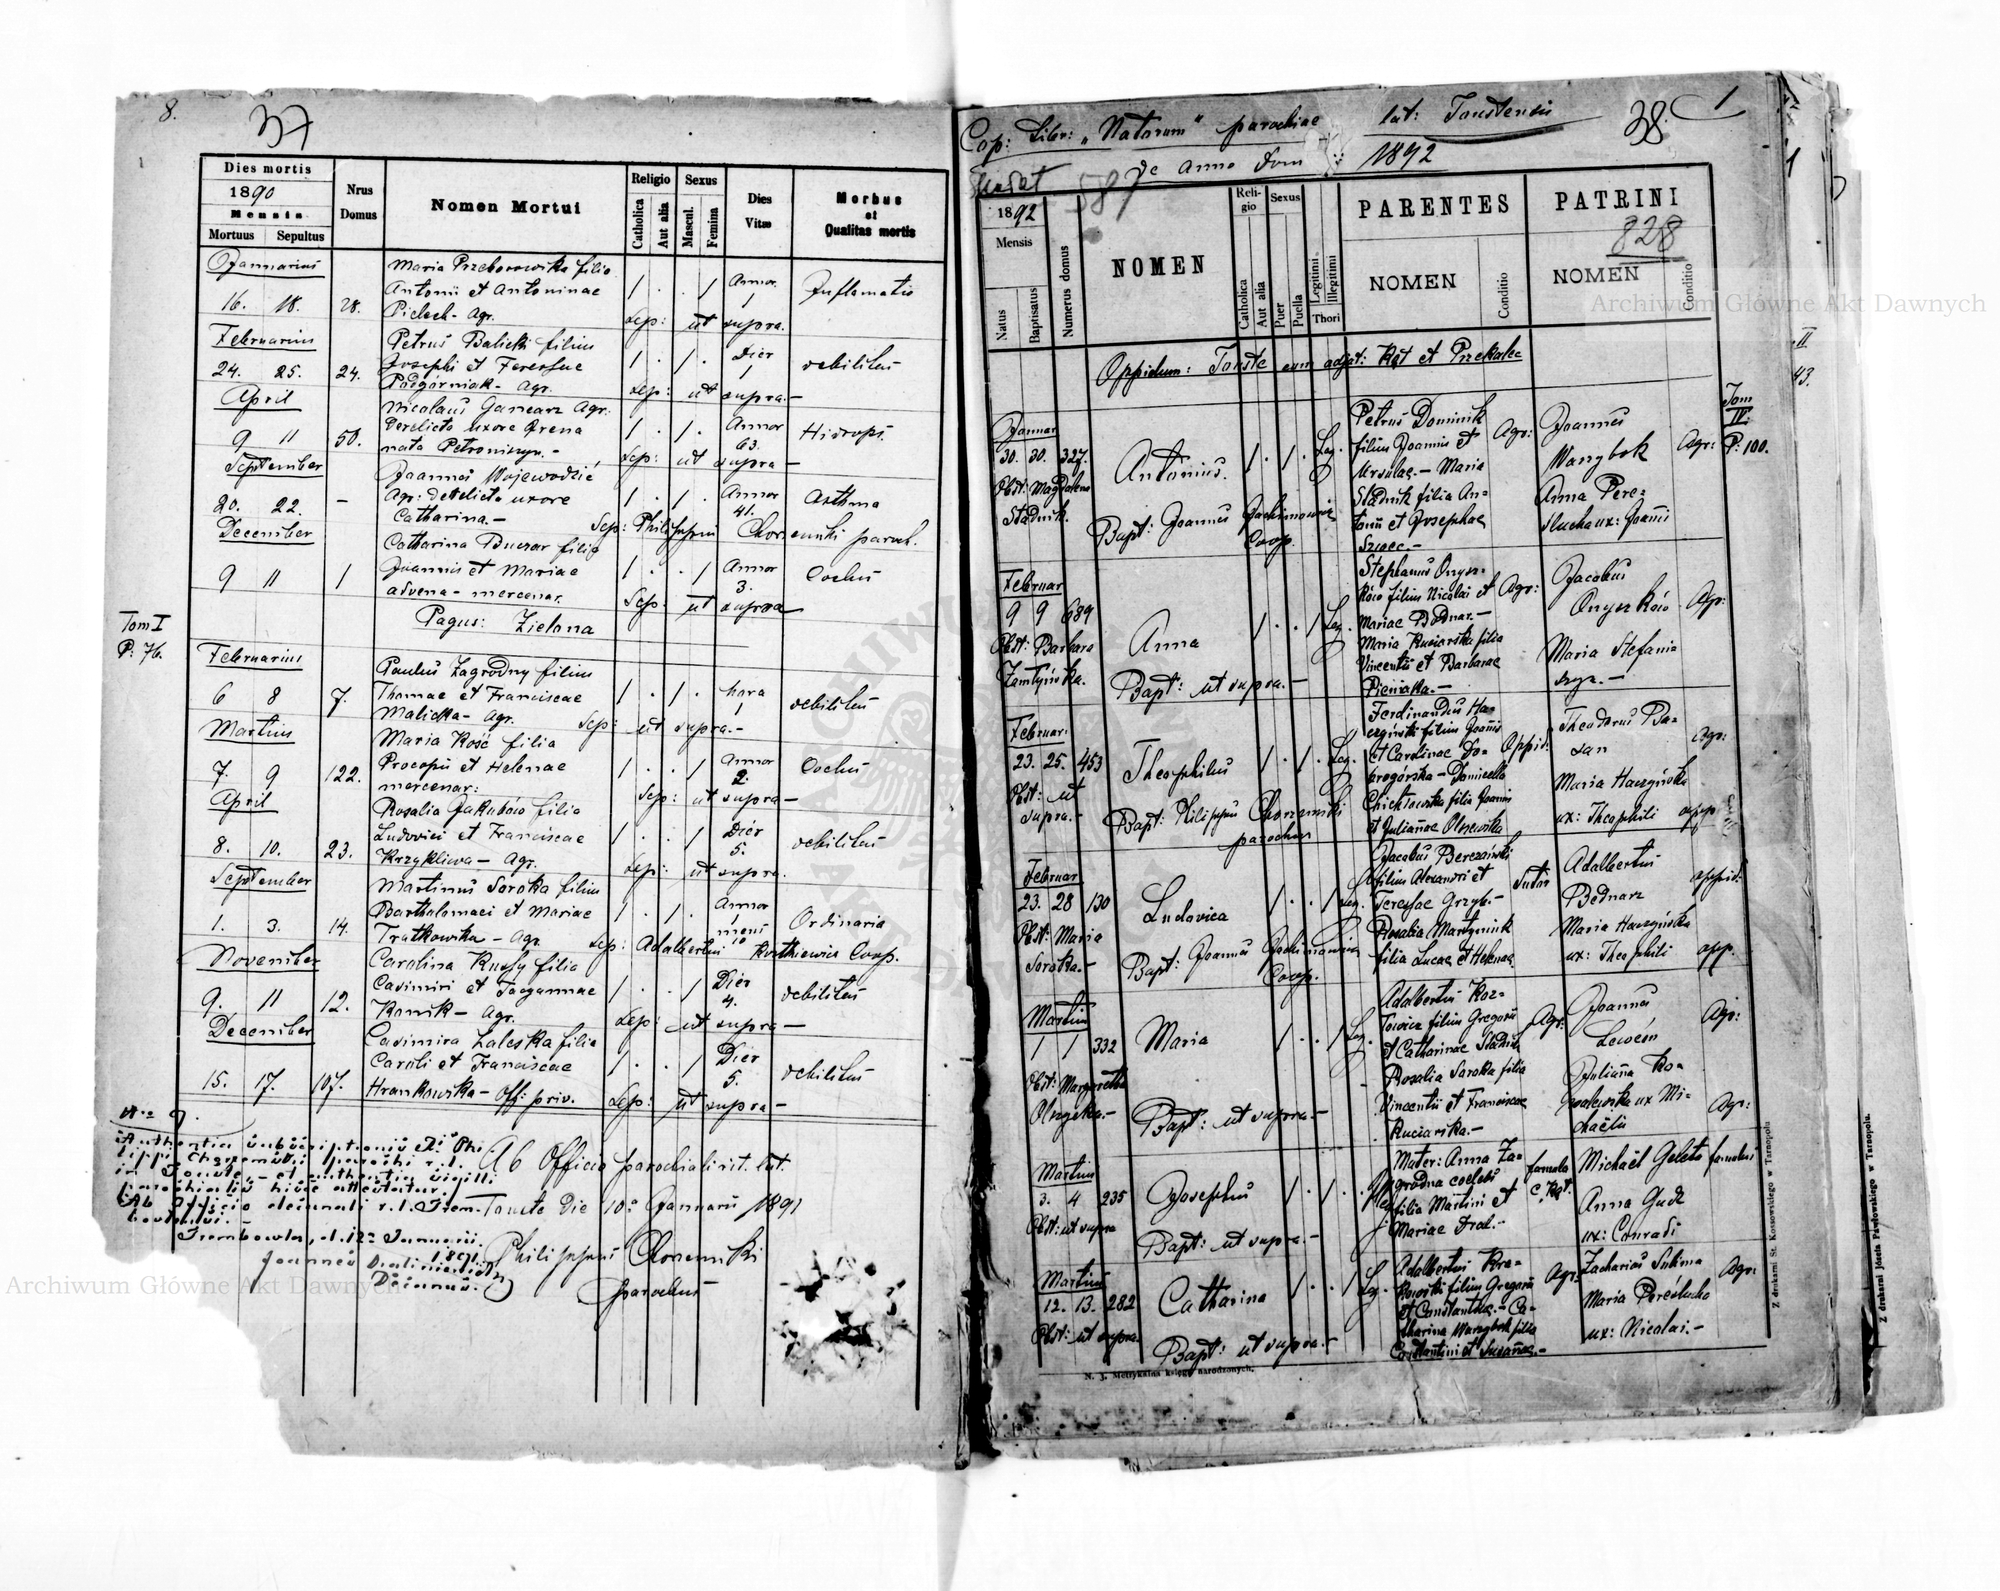 8.
37
Dies mortis
1890
Mensis
Mortuus Sepultus
Nrus Domus
Nomen Mortui
Religio
Catholica
Aut alia
Sexus
Mascul.
Femina
Dies Vitæ
Morbus et Qualitas mortis
Januarius
Maria Przeborowska filia
Antonii et Antoninae
Annor.
16. 18. 28.
Pielech - Agr.
1 . . 1
1
Inflamatio
Sep: ut supra.
Februarius
Petrus Balicki filius
Josephi et Teressae
Dier
24. 25. 24.
Podgórniak - Agr.
1 . 1 .
1
debilitas
Sep: ut supra.-
April
Nicolaus Gancarz Agr.
derelicta uxore Irena
Annor
9 11 50.
nata Petroniszyn.-
1 . 1 .
63.
Hidrops.
Sep: ut supra-
September
Joannes Wojewodzic
Agr: derelicta uxore
Annor
20. 22. -
Catharina.-
1 . 1 .
41.
Asthma
Sep: Philippus Chorzemski paroch.
December
Catharina Buczar filia
Joannis et Mariae
Annor
9 11 1
advena - mercenar.
1 . . 1
3.
Sep: ut supra
Tom I
P: 76.
Pagus: Zielona
Februarius
Paulus Zagrodny filius
Thomae et Franciscae
hora
6 8 7.
Malicka - Agr.
1 . 1 .
1
debilitas
Sep: ut supra.-
Martius
Maria Kość filia
Procopii et Helenae
Annor
7. 9 122.
mercenar:
1 . . 1
2.
Sep: ut supra-
April
Rosalia Jakubów filia
Ludovici et Franciscae
Dier
8. 10. 23.
Krzykliwa - Agr.
1 . . 1
5.
debilitas
Sep: ut supra.
September
Martinus Soroka filius
Bartholomaei et Mariae
Annor
1. 3. 14.
Tratkowska - Agr.
1 . 1 .
1
mens
10
Ordinaria
Sep: Adalbertus Coop.
November
Carolina filia
Casimiri et
Dier
9. 11 12.
Konik - Agr.
1 . . 1
4.
debilitas
Sep: ut supra-
December
Casimira Zaleska filia
Caroli et Franciscae
Dier
15. 17. 107.
Hrankowska - Off: priv.
1 . . 1
5.
debilitas
Sep: ut supra-
Nro 9.
Ab Officio parochiali rit. lat.
Touste die 10a Januarii 1891
Philippus Chorzemski
parochus
Trembowla, d. 12a Januarii
1891
Decanus.
38. 1
Cop: Libr: „Natorum" parochiae lat: Toustensis
587 de Anno Dom: 1892
1892
Mensis
Natus
Baptisatus
Numerus domus
NOMEN
Religio
Catholica
Aut alia
Sexus
Puer
Puella
Legitimi
Illegitimi
Thori
PARENTES
NOMEN
Conditio
PATRINI
828
NOMEN
Conditio
Oppidum: Touste cum adjat: Kąt et Przekalec
Tom
IV
P: 100.
Januar
30. 30. 327.
Obst: Magdalena
Stadnik.
Antonius.
1 . 1 . Leg.
Bapt: Joannes Jachimowicz
Coop.
Petrus Dominik
filius Joannis et
Ursulae.- Maria
Stadnik filia An-
tonii et Josephae
Szwec.-
Agr:
Joannes
Warzybok
Agr:
Anna Pere-
slucha ux: Joanni
Februar
9 9 689
Obst: Barbara
Anna
1 . . 1 Leg.
Bapt: ut supra.-
Stephanus Onysz-
ków filius Nicolai et
Mariae Bednar.-
Maria Kuciarska filia
Vincentii et Barbarae
Pieniaka.-
Agr:
Jacobus
Onyszków
Agr:
Maria Stefania
szyn.-
Februar:
23. 25. 453
Obst: ut
supra.-
Theophilus
1 . 1 . Leg.
Bapt: Filippus Chorzemski
parochus
Ferdinandus Ha-
czyński filius Joanis
et Carolinae Do-
brogórska - Domicella
filia Joanis
et Julianae Olszewska
Oppid:
Theodorus Ba-
zan
Agr:
Maria Haczyńska
ux: Theophili
opp.
Februar
23. 28 130
Obst: Maria
Soroka.-
Ludovica
1 . . 1 Leg.
Bapt: Joannes Jachimowicz
Coop.
Jacobus Berezański
filius Alexandri et
Teressae Grzyb.-
Rosalia Martyniuk
filia Lucae et Helenae
Sutor
Adalbertus
Bednarz
oppid:
Maria Haczyńska
ux: Theophili
opp.
Martius
1 1 332
Obst: Margaretha
Maria
1 . . 1 Leg.
Bapt: ut supra.-
Adalbertus Koz-
łowicz filius Gregorii
et Catharinae Stadnik
Rosalia Soroka filia
Vincentii et Franciscae
Kuciarska.-
Agr:
Joannes
Agr:
Juliana Ko-
walewska ux Mi-
chaëlis
Agr:
Martius
3. 4 235
Obst: ut supra
Josephus
1 . 1 .
Bapt: ut supra.-
Mater: Anna Za-
grodna coelebs
filia Martini et
Mariae Dral.-
famula
c. Kąt.
Michaël Geleta famulus
Anna Gudz
ux: Conradi
Martius
12. 13. 282
Obst: ut supra.
Catharina
1 . . 1 Leg.
Bapt: ut supra.-
Adalbertus Kra-
kowski filius Gregorii
et Constantiae.- Ca-
tharina Warzybok filia
Constantini et Susannae.-
Agr:
Zacharias Sulima
Agr:
Maria Peresłucha
ux: Nicolai.-
N. 3. Metrykalna księga narodzonych.
Z drukarni St. Kossowskiego w Tarnopolu
Z drukarni Józefa Pawłowskiego w Tarnopolu.
II
43.
Archiwum Główne Akt Dawnych
Archiwum Główne Akt Dawnych